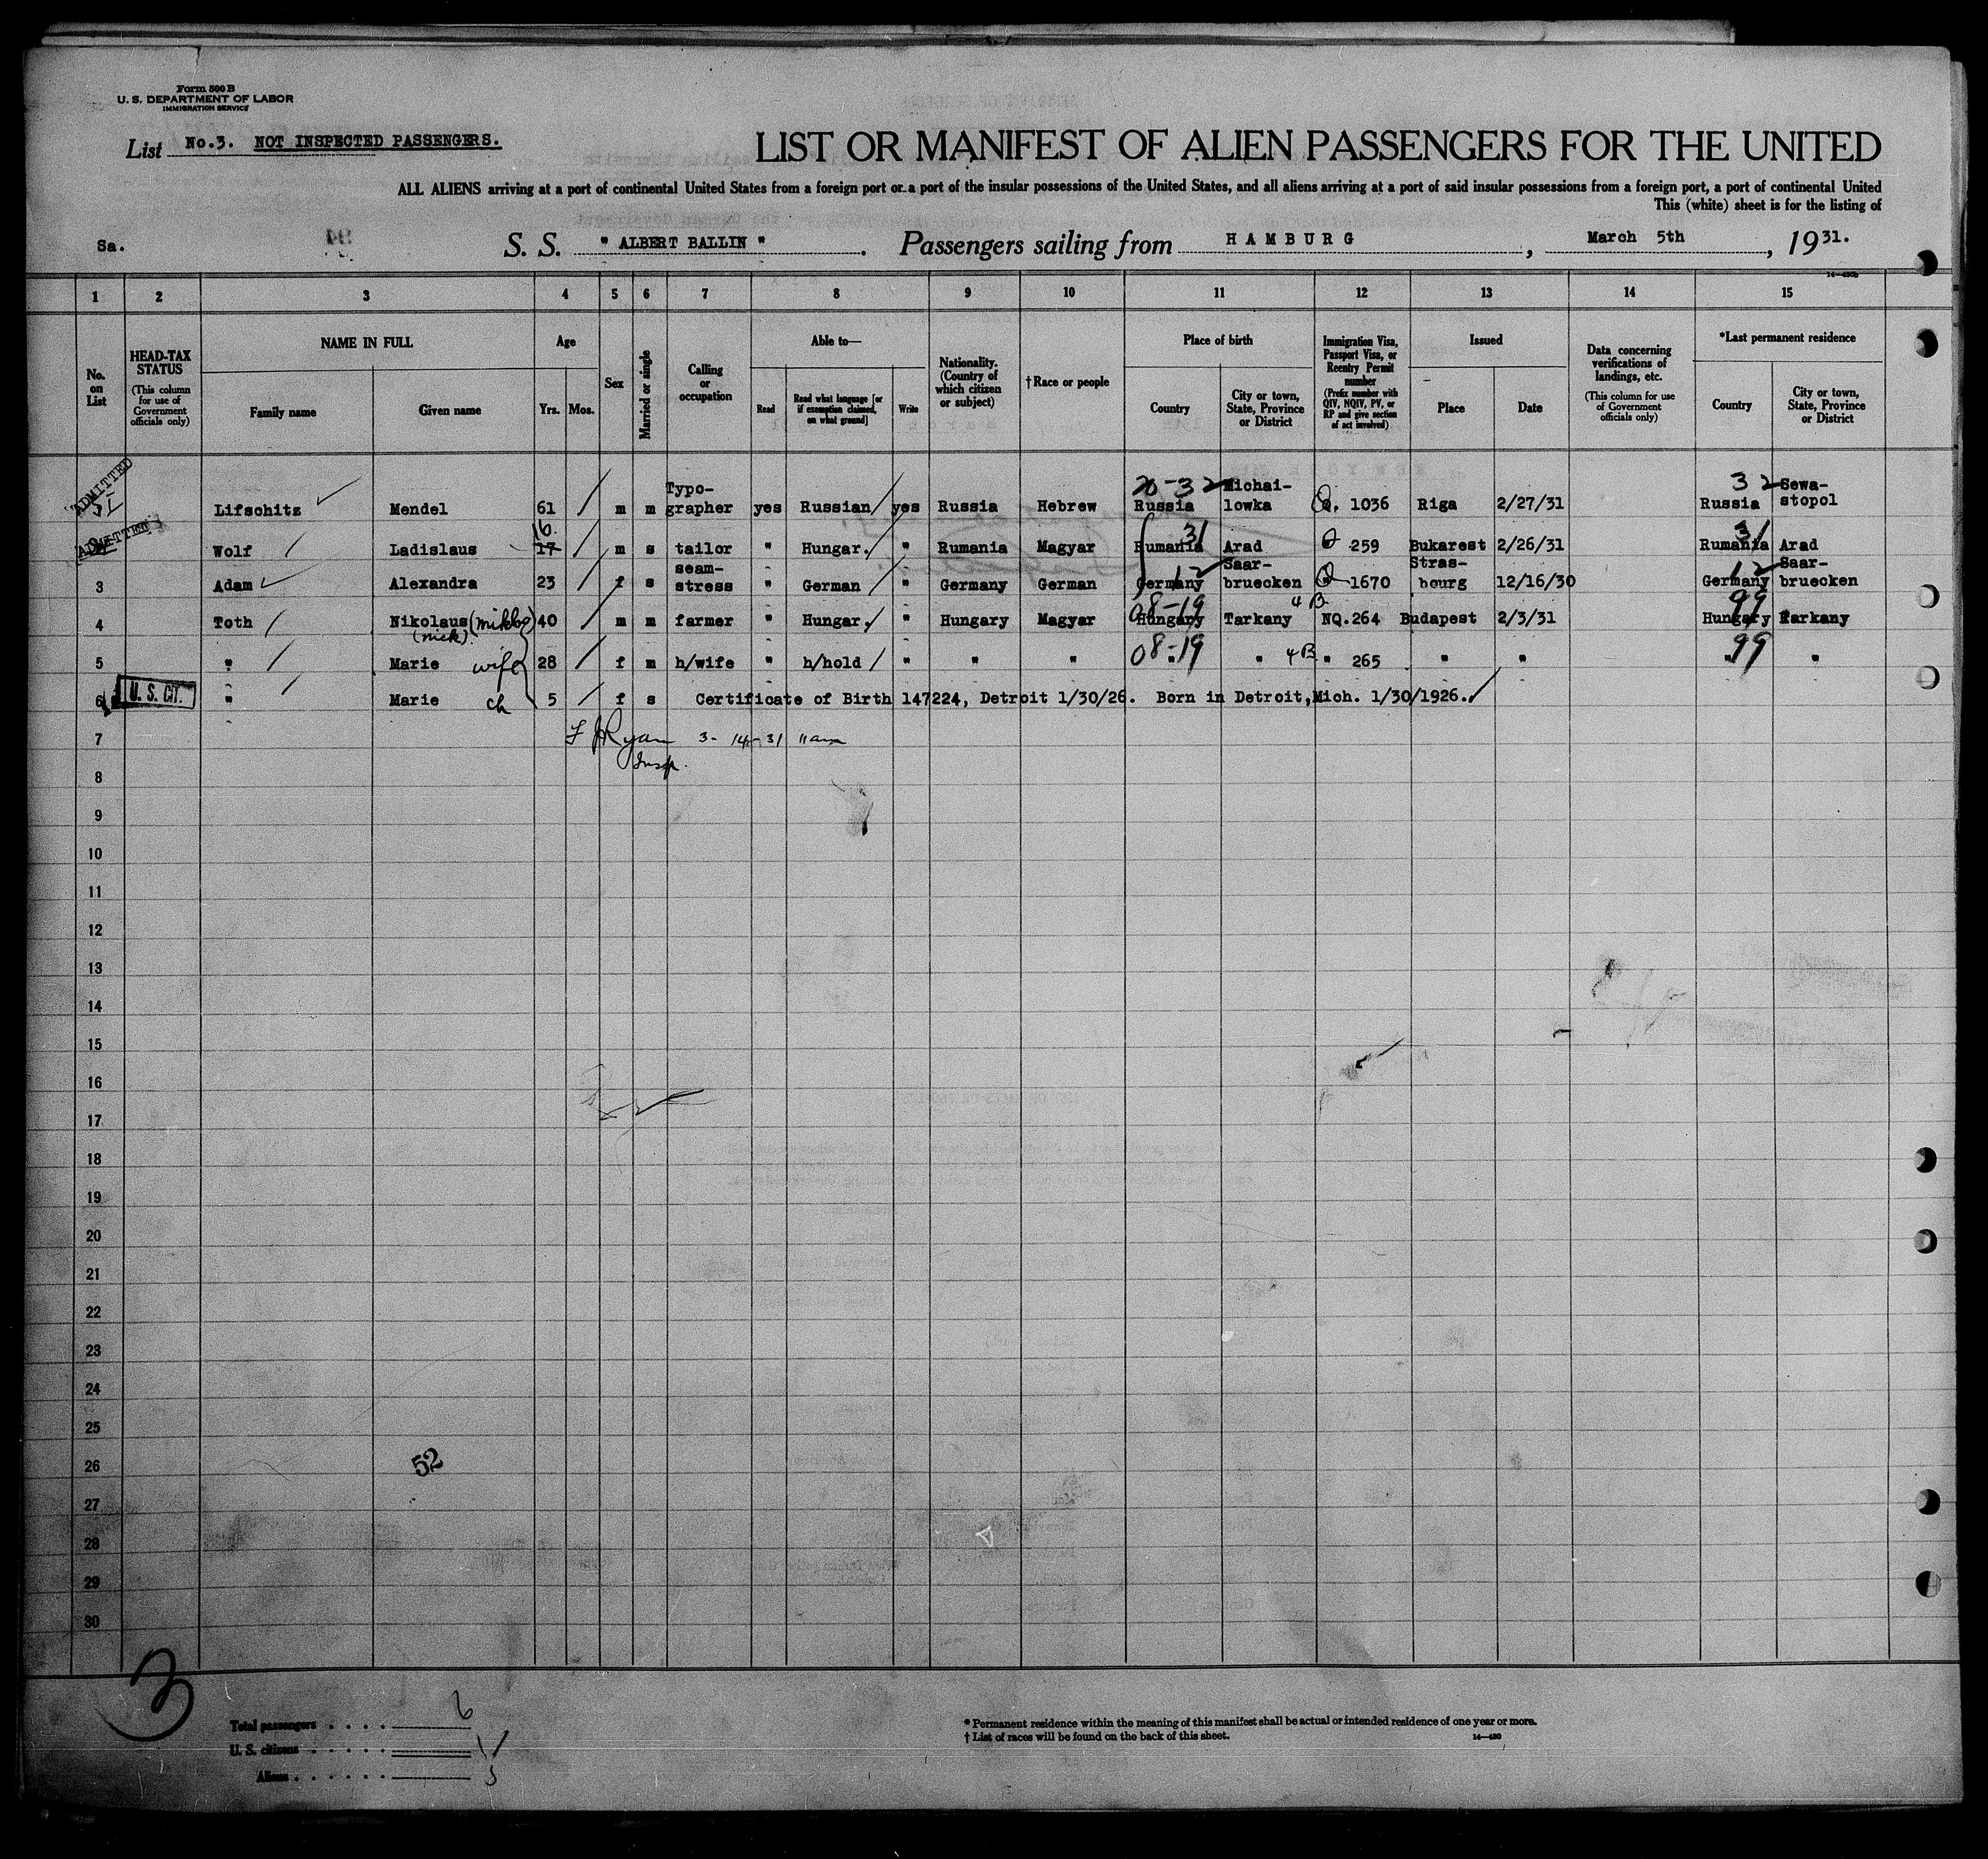 Form 500 B
U. S. DEPARTMENT OF LABOR
IMMIGRATION SERVICE
List No.3. NOT INSPECTED PASSENGERS.
LIST OR MANIFEST OF ALIEN PASSENGERS FOR THE UNITED
ALL ALIENS arriving at a port of continental United States from a foreign port or a port of the insular possessions of the United States, and all aliens arriving at a port of said insular possessions from a foreign port, a port of continental United
This (white) sheet is for the listing of
Sa. S. S. " ALBERT BALLIN ". Passengers sailing from HAMBURG, March 5th, 1931.
1 2 3 4 5 6 7 8 9 10 11 12 13 14 15
No. on List
HEAD-TAX STATUS
(This column for use of Government officials only)
NAME IN FULL
Family name Given name
Age
Yrs. Mos.
Sex
Married or single
Calling or occupation
Able to—
Read Read what language [or if exemption claimed, on what ground] Write
Nationality. (Country of which citizen or subject)
†Race or people
Place of birth
Country City or town, State, Province or District
Immigration Visa, Passport Visa, or Reentry Permit number
(Prefix number with QIV, NQIV, PV, or RP and give section of act involved)
Issued
Place Date
Data concerning verifications of landings, etc.
(This column for use of Government officials only)
*Last permanent residence
Country City or town, State, Province or District
ADMITTED Lifschitz Mendel 61 m m Typo-grapher yes Russian yes Russia Hebrew 20-32 Russia Michai-lowka Q. 1036 Riga 2/27/31 32 Russia Sewa-stopol
ADMITTED Wolf Ladislaus 16 17 m s tailor " Hungar. " Rumania Magyar 31 Rumania Arad Q 259 Bukarest 2/26/31 31 Rumania Arad
3 Adam Alexandra 23 f s seam-stress " German " Germany German 12 Germany Saar-bruecken Q 1670 Stras-bourg 12/16/30 12 Germany Saar-bruecken
4 Toth Nikolaus (Miklos) (nick) 40 m m farmer " Hungar. " Hungary Magyar 08-19 Hungary Tarkany 4B NQ.264 Budapest 2/3/31 99 Hungary Tarkany
5 " Marie wife 28 f m h/wife " h/hold " " " 08-19 " " 4B " 265 " " 99 " "
6 U. S. CIT. " Marie ch 5 f s Certificate of Birth 147224, Detroit 1/30/26. Born in Detroit, Mich. 1/30/1926.
7 F J Ryan 3-14-31 11am
Insp.
8
9
10
11
12
13
14
15
16
17
18
19
20
21
22
23
24
25
26 52
27
28
29
30
3
Total passengers . . . . 6
U. S. citizens . . . . . 1
Aliens . . . . . . 5
* Permanent residence within the meaning of this manifest shall be actual or intended residence of one year or more.
† List of races will be found on the back of this sheet. 14—430